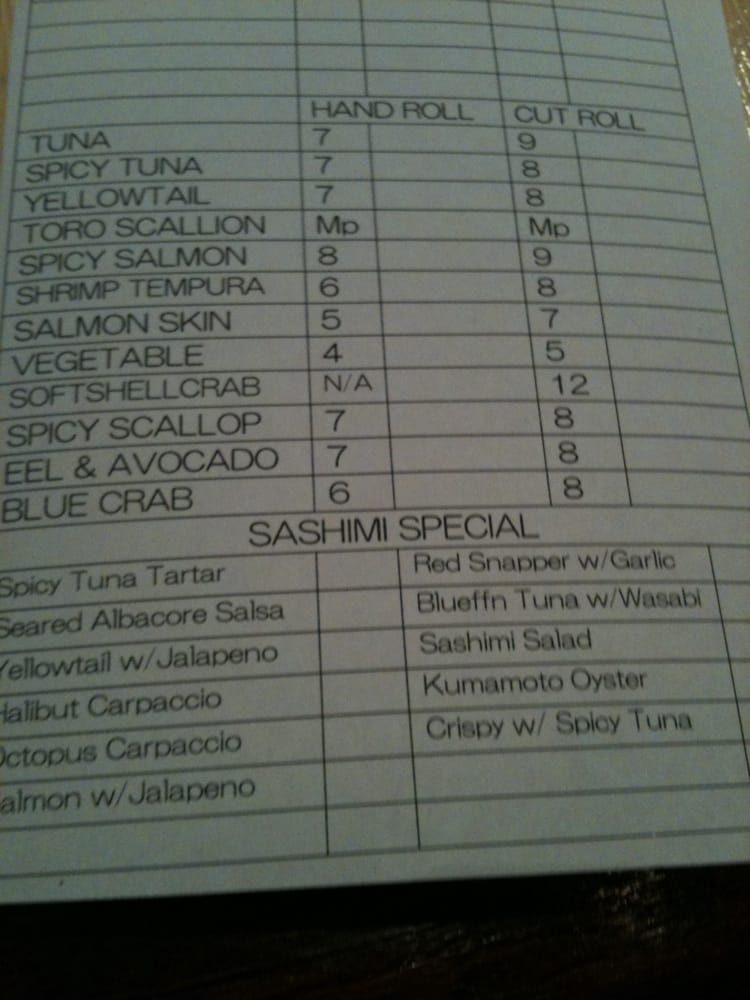 HAND ROLL CUT ROLL
TUNA 7 9
SPICY TUNA 7 8
YELLOWTAIL 7 8
TORO SCALLION Mp Mp
SPICY SALMON 8 9
SHRIMP TEMPURA 6 8
SALMON SKIN 5 7
VEGETABLE 4 5
SOFTSHELLCRAB N/A 12
SPICY SCALLOP 7 8
EEL & AVOCADO 7 8
BLUE CRAB 6 8
SASHIMI SPECIAL
Spicy Tuna Tartar Red Snapper w/Garlic
Seared Albacore Salsa Blueffn Tuna w/Wasabi
Yellowtail w/Jalapeno Sashimi Salad
Halibut Carpaccio Kumamoto Oyster
Octopus Carpaccio Crispy w/ Spicy Tuna
almon w/Jalapeno